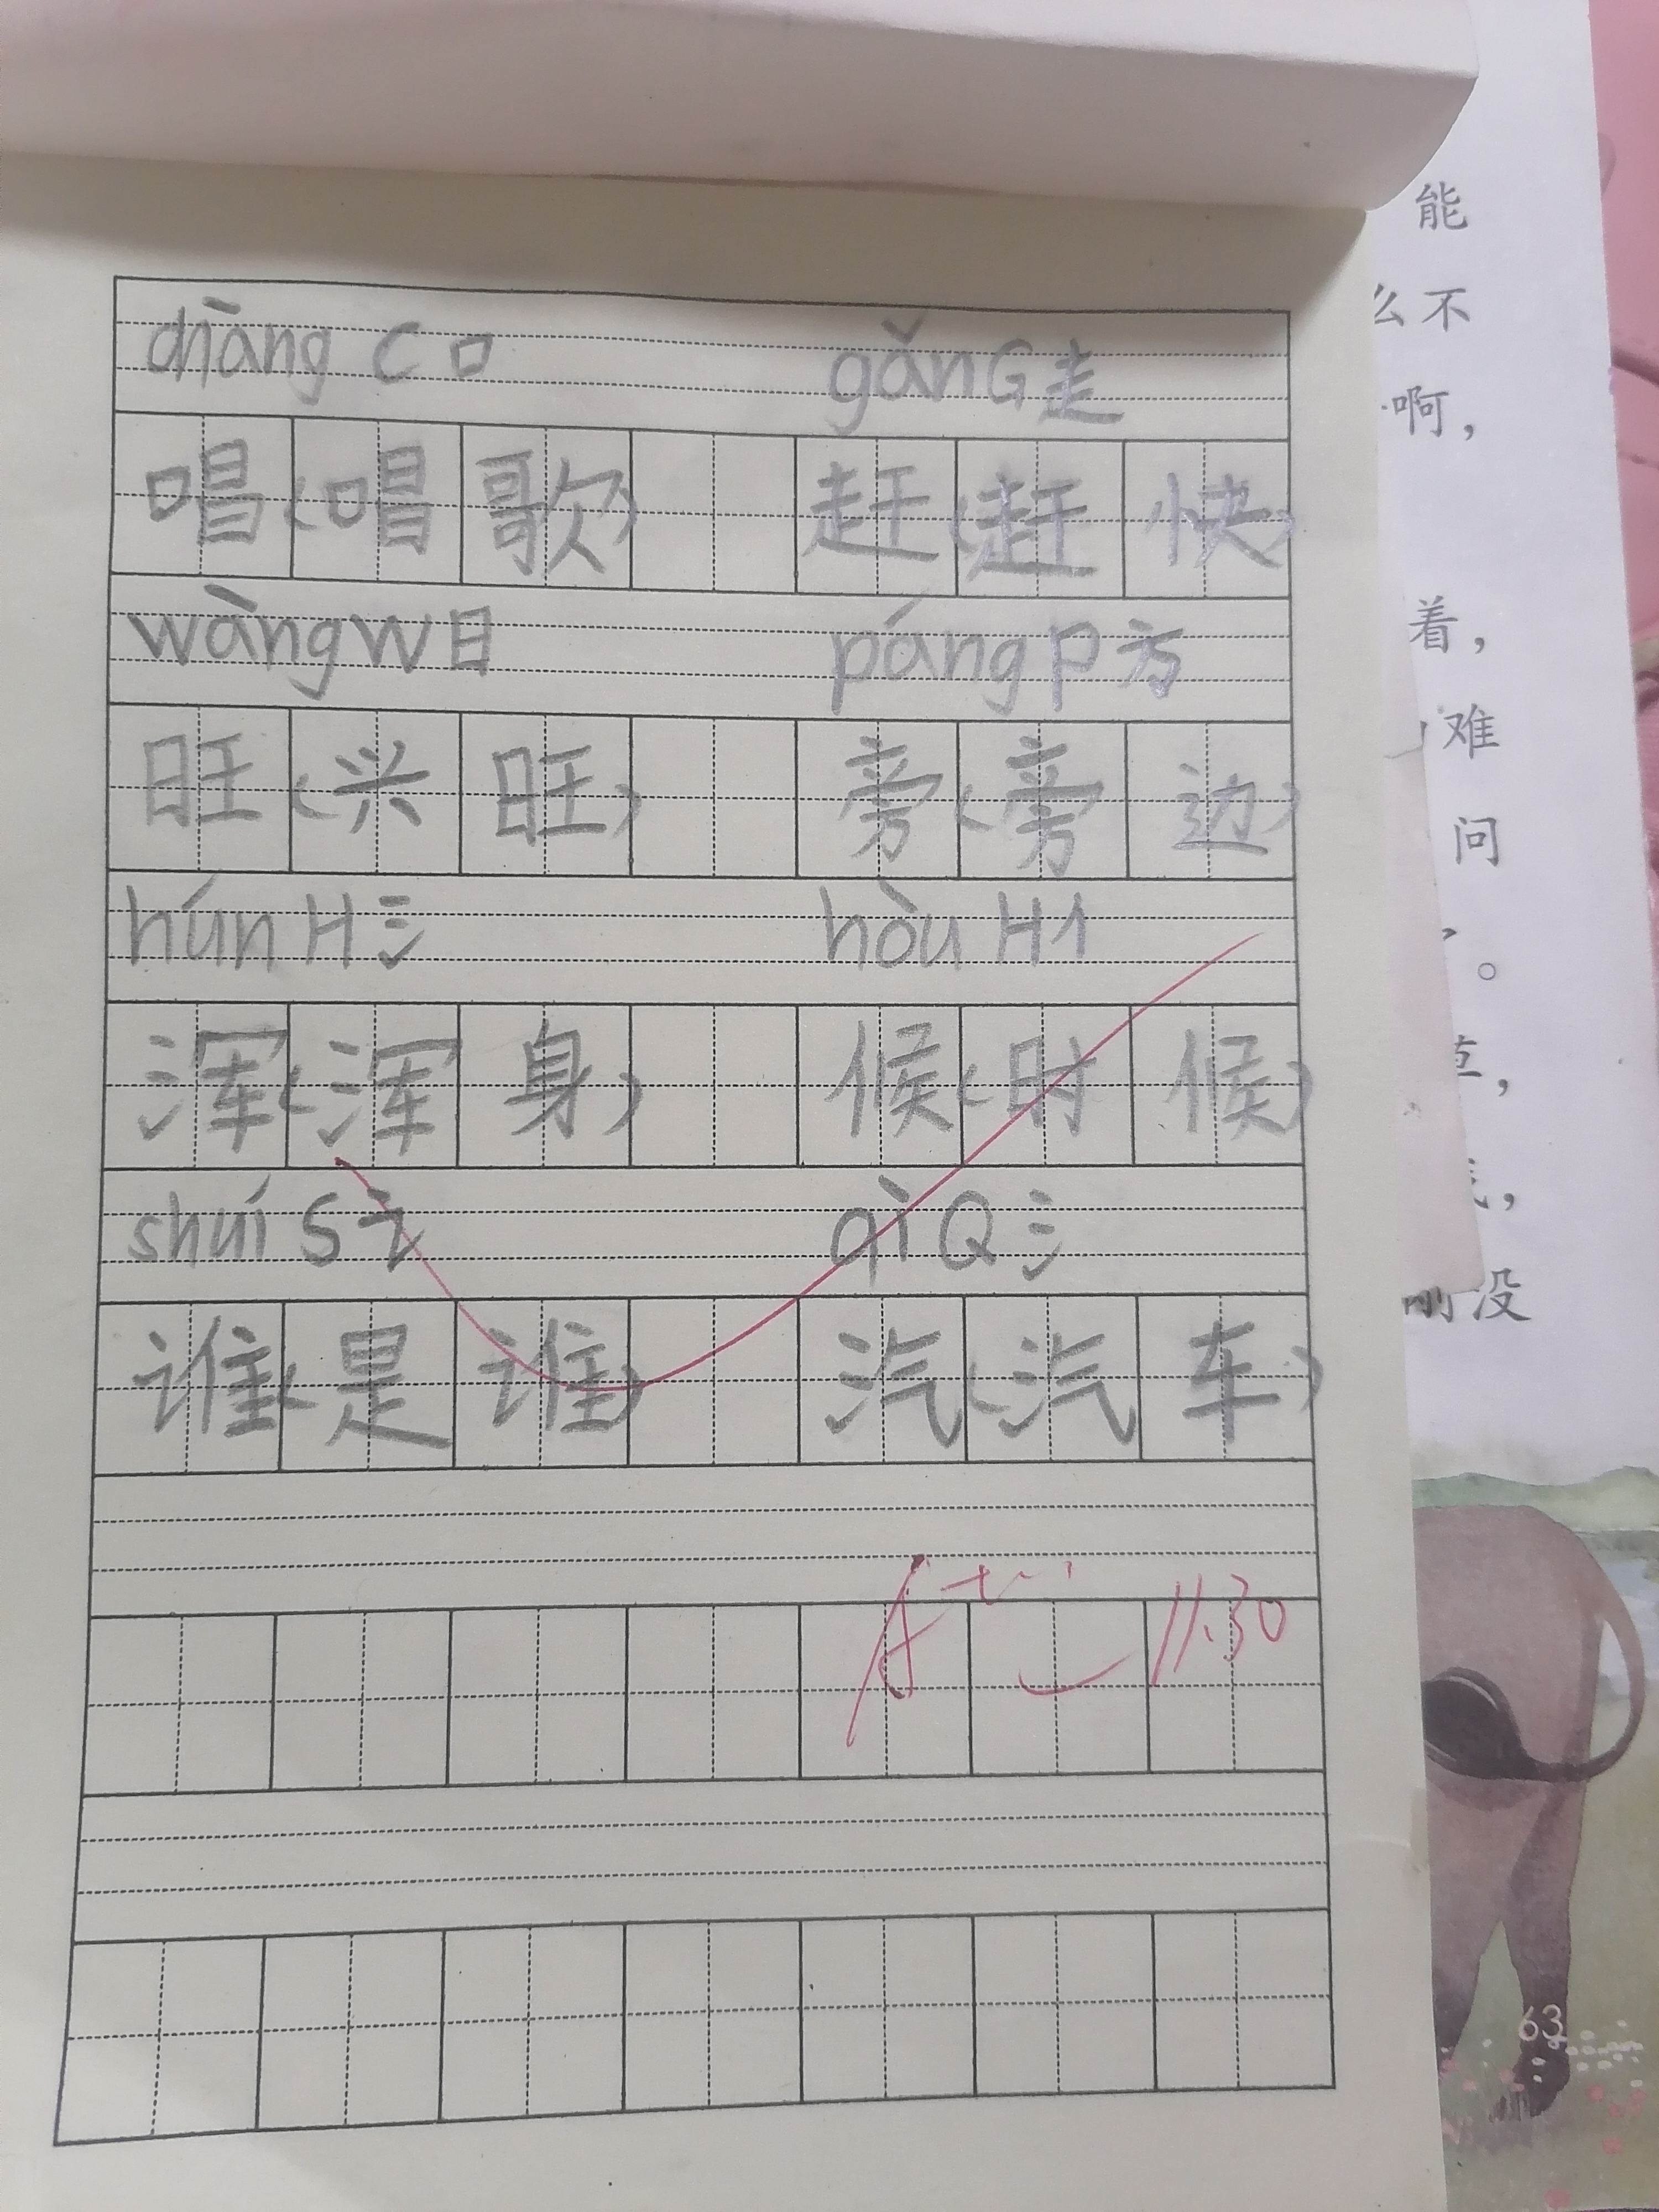 chàng C 口 gǎn G 走
唱(唱歌) 赶(赶快)
wàng W 日 páng P 方
旺(兴旺) 旁(旁边)
hún H 氵 hòu H 亻
浑(浑身) 候(时候)
shuí S 讠 qì Q 氵
谁(是谁) 汽(汽车)
11.30
能
么不
啊，
着，
难
问
。
，
没
63